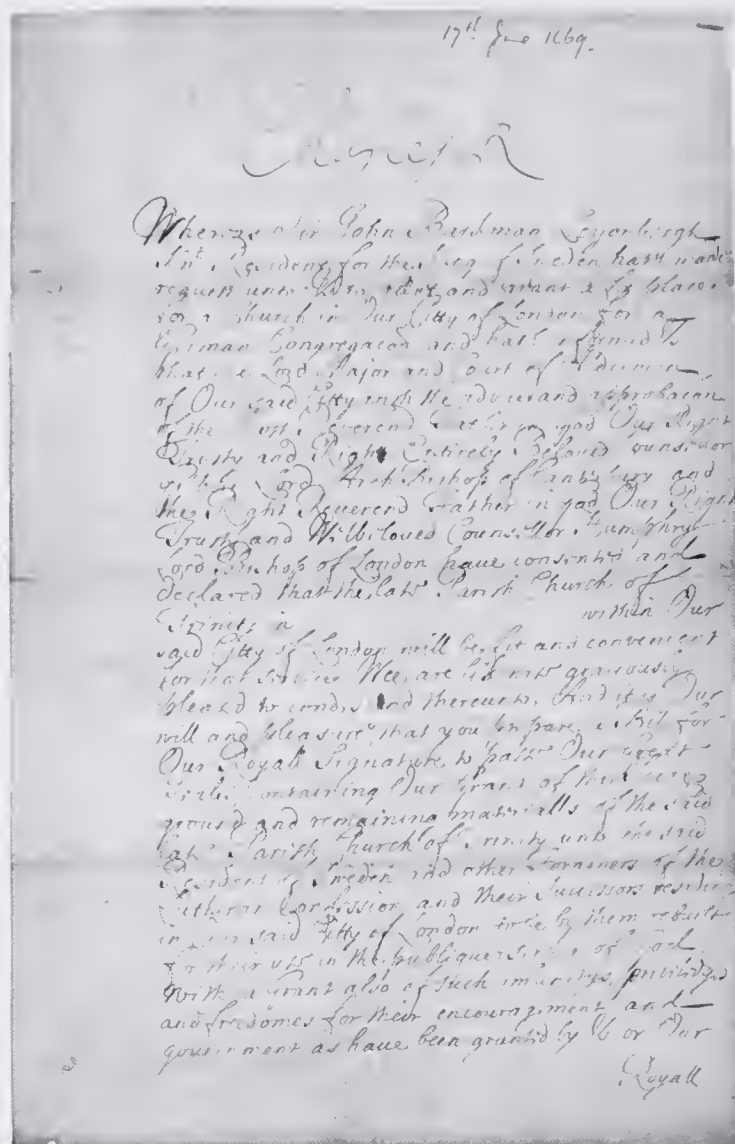 17th June 1669.
Charles R
Whereas Sir John Barkman Leyonbergh
Knt. Resident for the King of Sweden hath made
request unto Us to and grant a fit place
for a Church in Our Citty of London for a
German Congregacon and hath informed Us
that the Lord Major and Court of Aldermen
of Our said Citty with the advice and approbacon
of the most Reverend Father in god Our Right
Trusty and Right Entirely Beloved Counsellor
the Lord Archbishop of Canterbury and
the Right Reverend Father in god Our Right
Trusty and Welbeloved Counsellor Humfrey
Lord Bishop of London have consented and
declared that the late Parish Church of
Trinity in within Our
said Citty of London will be fit and convenient
for that service Wee are graciously
pleased to condescend thereunto. And it is Our
will and pleasure, that you prepare a Bill for
Our Royall Signature, to passe Our Great
Seale, Containing Our Grant of the
ground and remaining materialls of the said
late Parish Church of Trinity unto the said
Resident of Sweden and other Forreiners of the
Lutheran Confession and their Successors residing
in Our said Citty of London to be by them rebuilt
for their use in the publique service of God
With a Grant also of such imunitys, priviledges
and freedomes for their encouragement and
government as have been granted by Us or Our
Royall